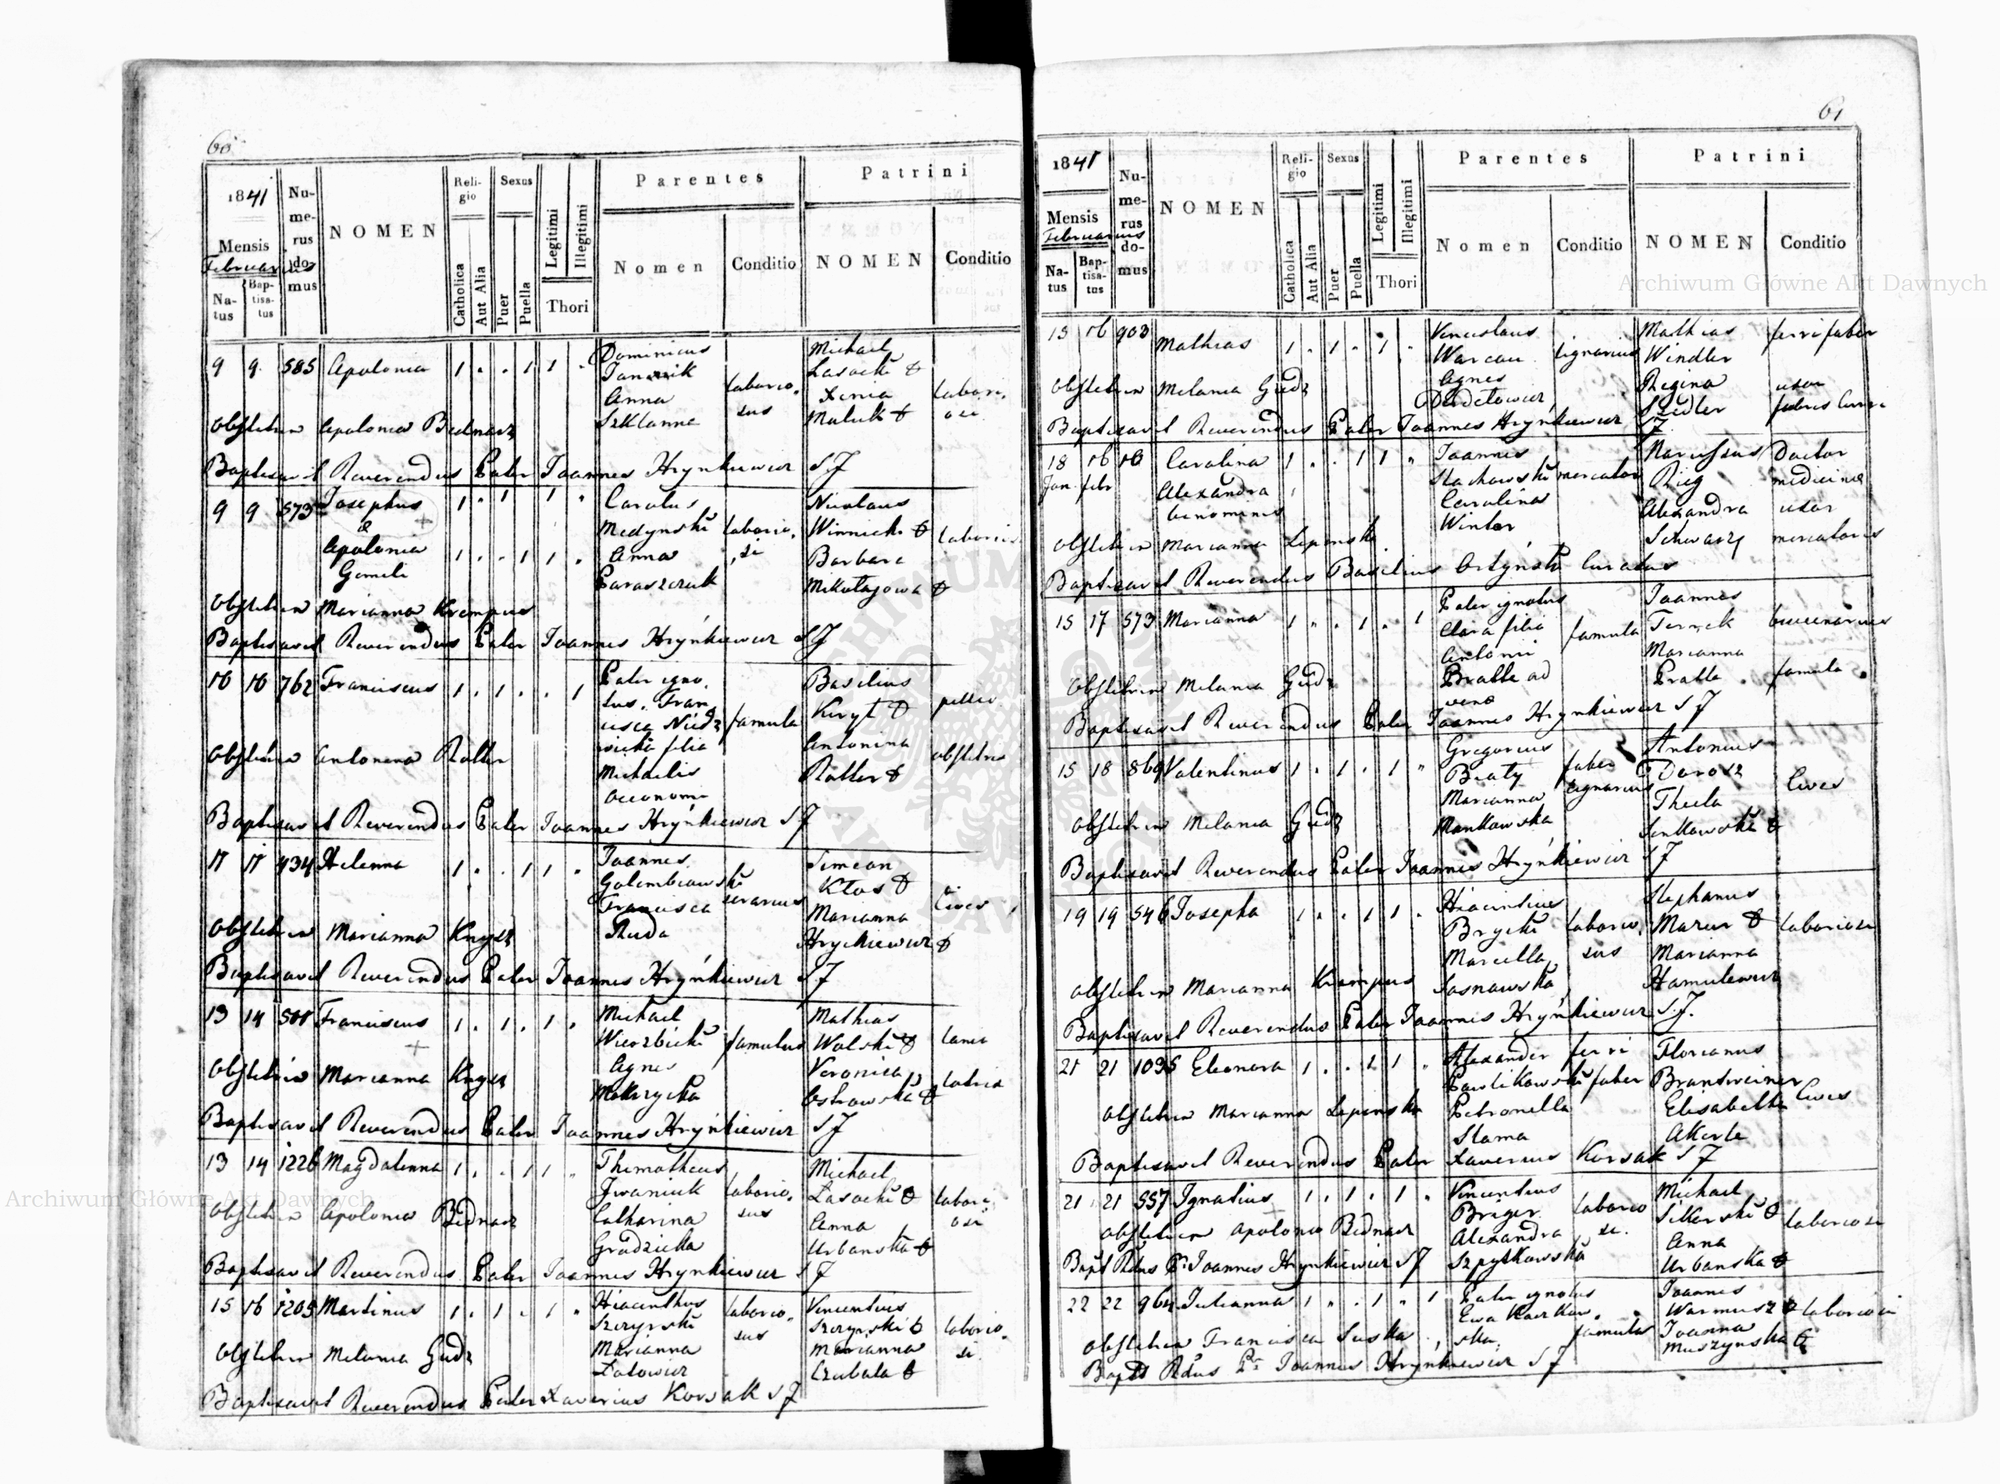 60
1841
Mensis
Februarius
Natus
Baptisatus
Numerus domus
NOMEN
Religio
Catholica
Aut Alia
Sexus
Puer
Puella
Legitimi
Illegitimi
Thori
Parentes
Nomen
Conditio
Patrini
NOMEN
Conditio
9 9 585 Apolonia 1 . . 1 1 . Dominicus Michael
Lasocki
Anna laborio- Xinia labori-
Szklanna sus
Obstetrix Apolonia Bednarz
Baptisavit Reverendus Pater Joannes Hrynkiewicz S.J
9 9 573 Josephus 1 . 1 1 " Carolus Nicolaus
& Medynski laborio- Winnicki laborio
Apolonia 1 . . 1 1 . Anna si Barbara
Gemeli Paraszczuk Mikołajowa
Obstetrix Marianna Krempus
Baptisavit Reverendus Pater Joannes Hrynkiewicz SJ
10 10 762 Franciscus 1 . 1 . . 1 Pater igno- Basilius
tus, Fran-
famula
filia Antonina obstetrix
Michaelis Rotter
Oeconomi
Obstetrix Antonina Rotter
Baptisavit Reverendus Pater Joannes Hrynkiewicz SJ
11 11 434 Helenna 1 . . 1 1 . Joannes Simeon
Golembiowski Kłos
Francisca serarius Marianna Cives
Ruda
Obstetrix Marianna Knysz
Hryckiewicz
Baptisavit Reverendus Pater Joannes Hrynkiewicz SJ
13 14 501 Franciscus 1 . 1 . 1 . Michael Mathias
Wierzbicki famulus Wolski
Agnes Veronica
Mokrzycka Ostrowska
Obstetrix Marianna Knysz
Baptisavit Reverendus Pater Joannes Hrynkiewicz SJ
13 14 1226 Magdalenna 1 . . 1 1 " Thimotheus Michael
Iwaniuk laborio- Lasocki labori-
Catharina sus Anna osi
Grodzicka Urbanska
Obstetrix Apolonia Bednarz
Baptisavit Reverendus Pater Joannes Hrynkiewicz SJ
15 16 1205 Martinus 1 . 1 . 1 " Hiacinthus laborio- Vincentius
Szczyrski sus Szczyrski laborio-
Marianna Marianna si
Zatowicz Czubata
Obstetrix Melania Gudz
Baptisavit Reverendus Pater Xaverius Korsak SJ
61
1841
Mensis
Februarius
Natus
Baptisatus
Numerus domus
NOMEN
Religio
Catholica
Aut Alia
Sexus
Puer
Puella
Legitimi
Illegitimi
Thori
Parentes
Nomen
Conditio
Patrini
NOMEN
Conditio
15 16 903 Mathias 1 . 1 . 1 . Venceslaus Mathias ferri faber
lignarius Windler
Agnes Regina uxor
Szedler
Obstetrix Melania Gudz
Baptisavit Reverendus Pater Joannes Hrynkiewicz SJ
18 16 10 Carolina 1 . . 1 1 " Joannes Narcissus Doctor
Jan. febr Alexandra Stachowski mercator medicinae
binominis Carolina Alexandra uxor
Winter Schwarz mercatoris
Obstetrix Marianna Lepinska
Baptisavit Reverendus Basilius Ortynski Curatus
15 17 573 Marianna 1 . . 1 . 1 Pater ignotus Joannes
Clara filia famula
Antonii Marianna
Obstetrix Melania Gudz
famula
Baptisavit Reverendus Pater Joannes Hrynkiewicz SJ
15 18 869 Valentinus 1 . 1 . 1 " Gregorius faber Antonius
Biały lignarius Dorosz Cives
Marianna Thecla
Mankowska Senkowski
Obstetrix Melania Gudz
Baptisavit Reverendus Pater Joannes Hrynkiewicz SJ
19 19 546 Josepha 1 . . 1 1 . Hiacinthus Stephanus
Brycki laborio- Mazur laboriosi
Marcella sus Marianna
Sosnowska Hamulewicz
Obstetrix Marianna Krempus
Baptisavit Reverendus Pater Joannes Hrynkiewicz S.J.
21 21 1095 Eleonora 1 . . 1 1 " Alexander ferri Florianus
Pawlikowski faber Brantweiner
Petronella Elisabetha Cives
Slama
Obstetrix Marianna Lepinska
Baptisavit Reverendus Pater Xaverius Korsak SJ
21 21 557 Ignatius 1 . 1 . 1 " Vincentius laborio Michael
Breger si. Sikorski laboriosi
Alexandra Anna
Szpytkowska Urbanska
Obstetrix Apolonia Bednarz
Bapt Rdus Pr Joannes Hrynkiewicz SJ
22 22 964 Julianna 1 " . 1 " 1 Pater ignotus Joannes
Ewa Warmusz laboriosi
ska, famula Joanna
Muszynska
Obstetrix Francisca Suska
Bapt Rdus Pr Joannes Hrynkiewicz SJ
Archiwum Główne Akt Dawnych
Archiwum Główne Akt Dawnych